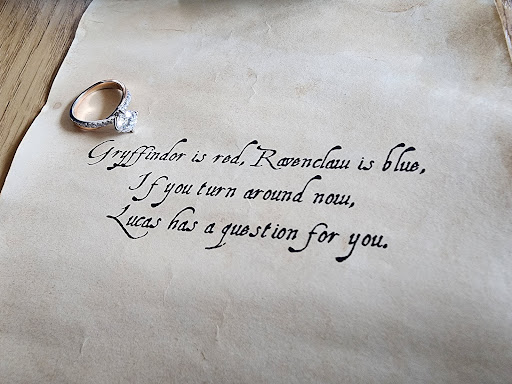 Gryffindor is red, Ravenclaw is blue,
If you turn around now,
Lucas has a question for you.